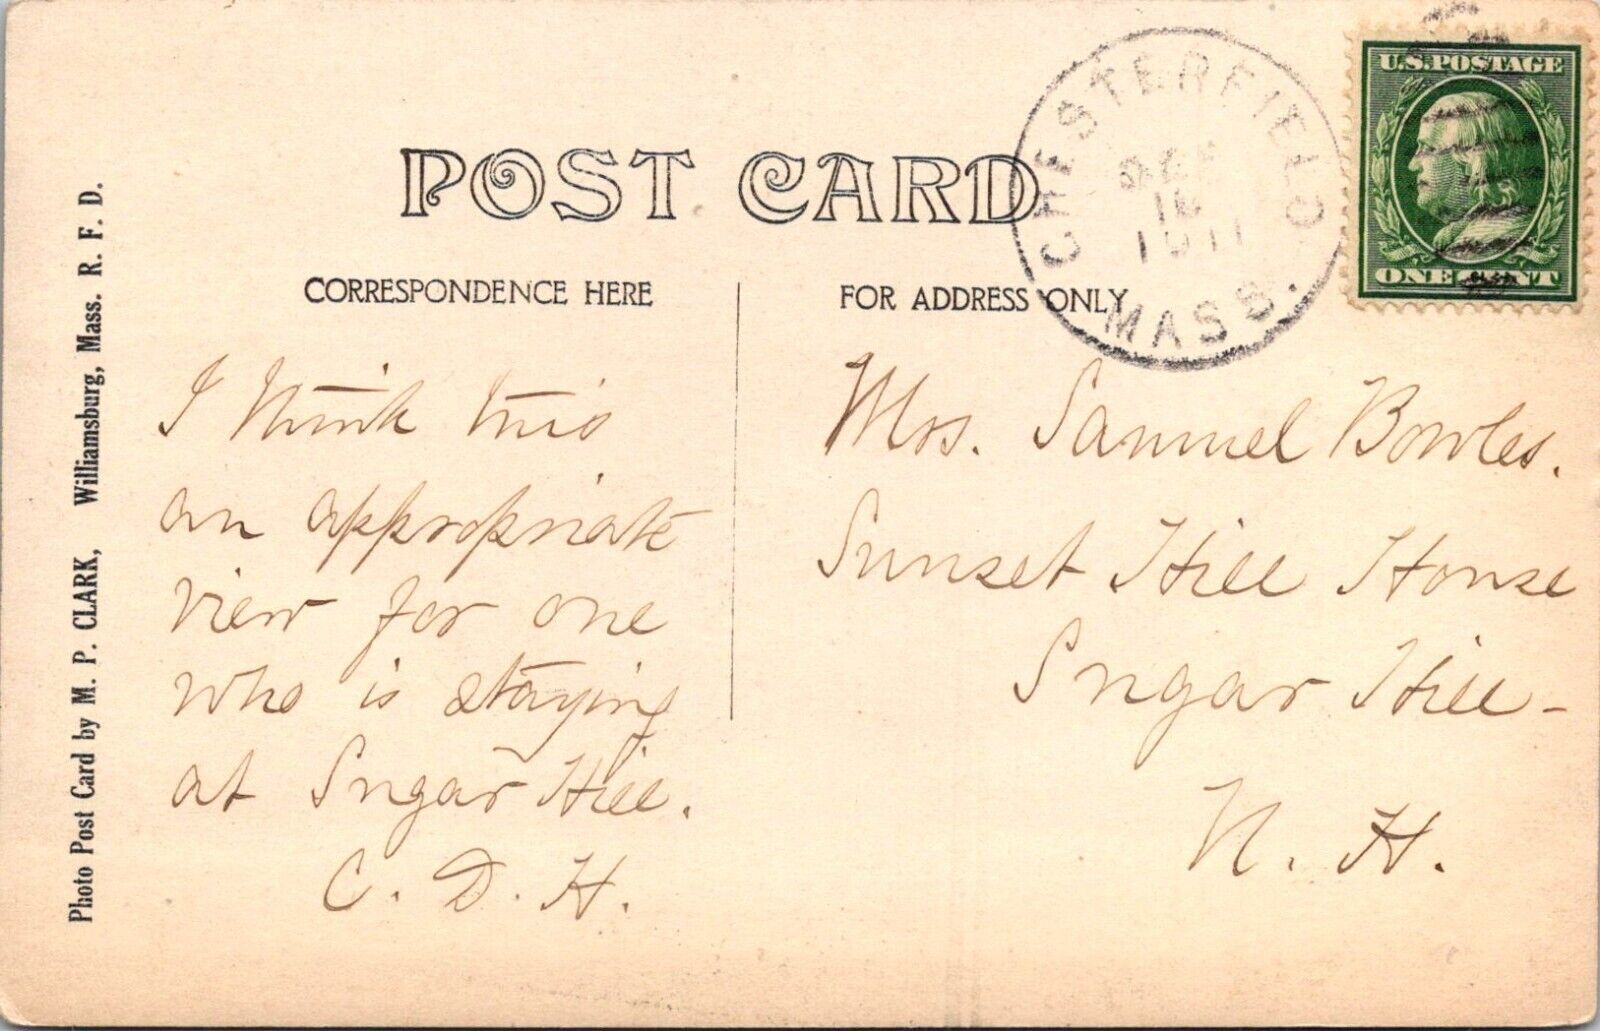 POST CARD
CORRESPONDENCE HERE
FOR ADDRESS ONLY
CHESTERFIELD
1911
MASS.
U.S. POSTAGE
ONE CENT
Photo Post Card by M. P. CLARK, Williamsburg, Mass. R. F. D.
I think this
an appropriate
view for one
who is staying
at Sugar Hill.
C. D. H.
Mrs. Samuel Bowles.
Sunset Hill House
Sugar Hill -
N. H.